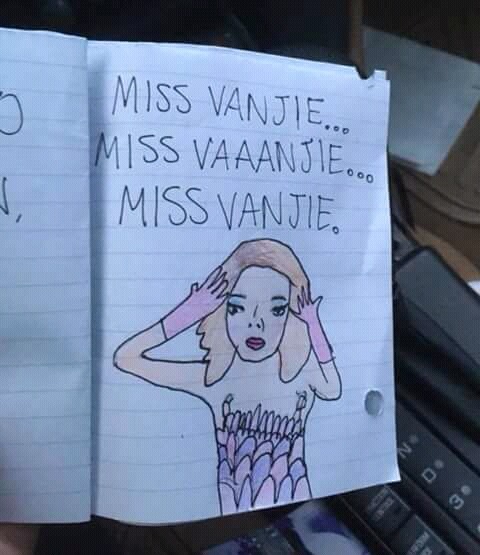 MISS VANJIE...
MISS VAAANJIE...
MISS VANJIE.
N
D
3